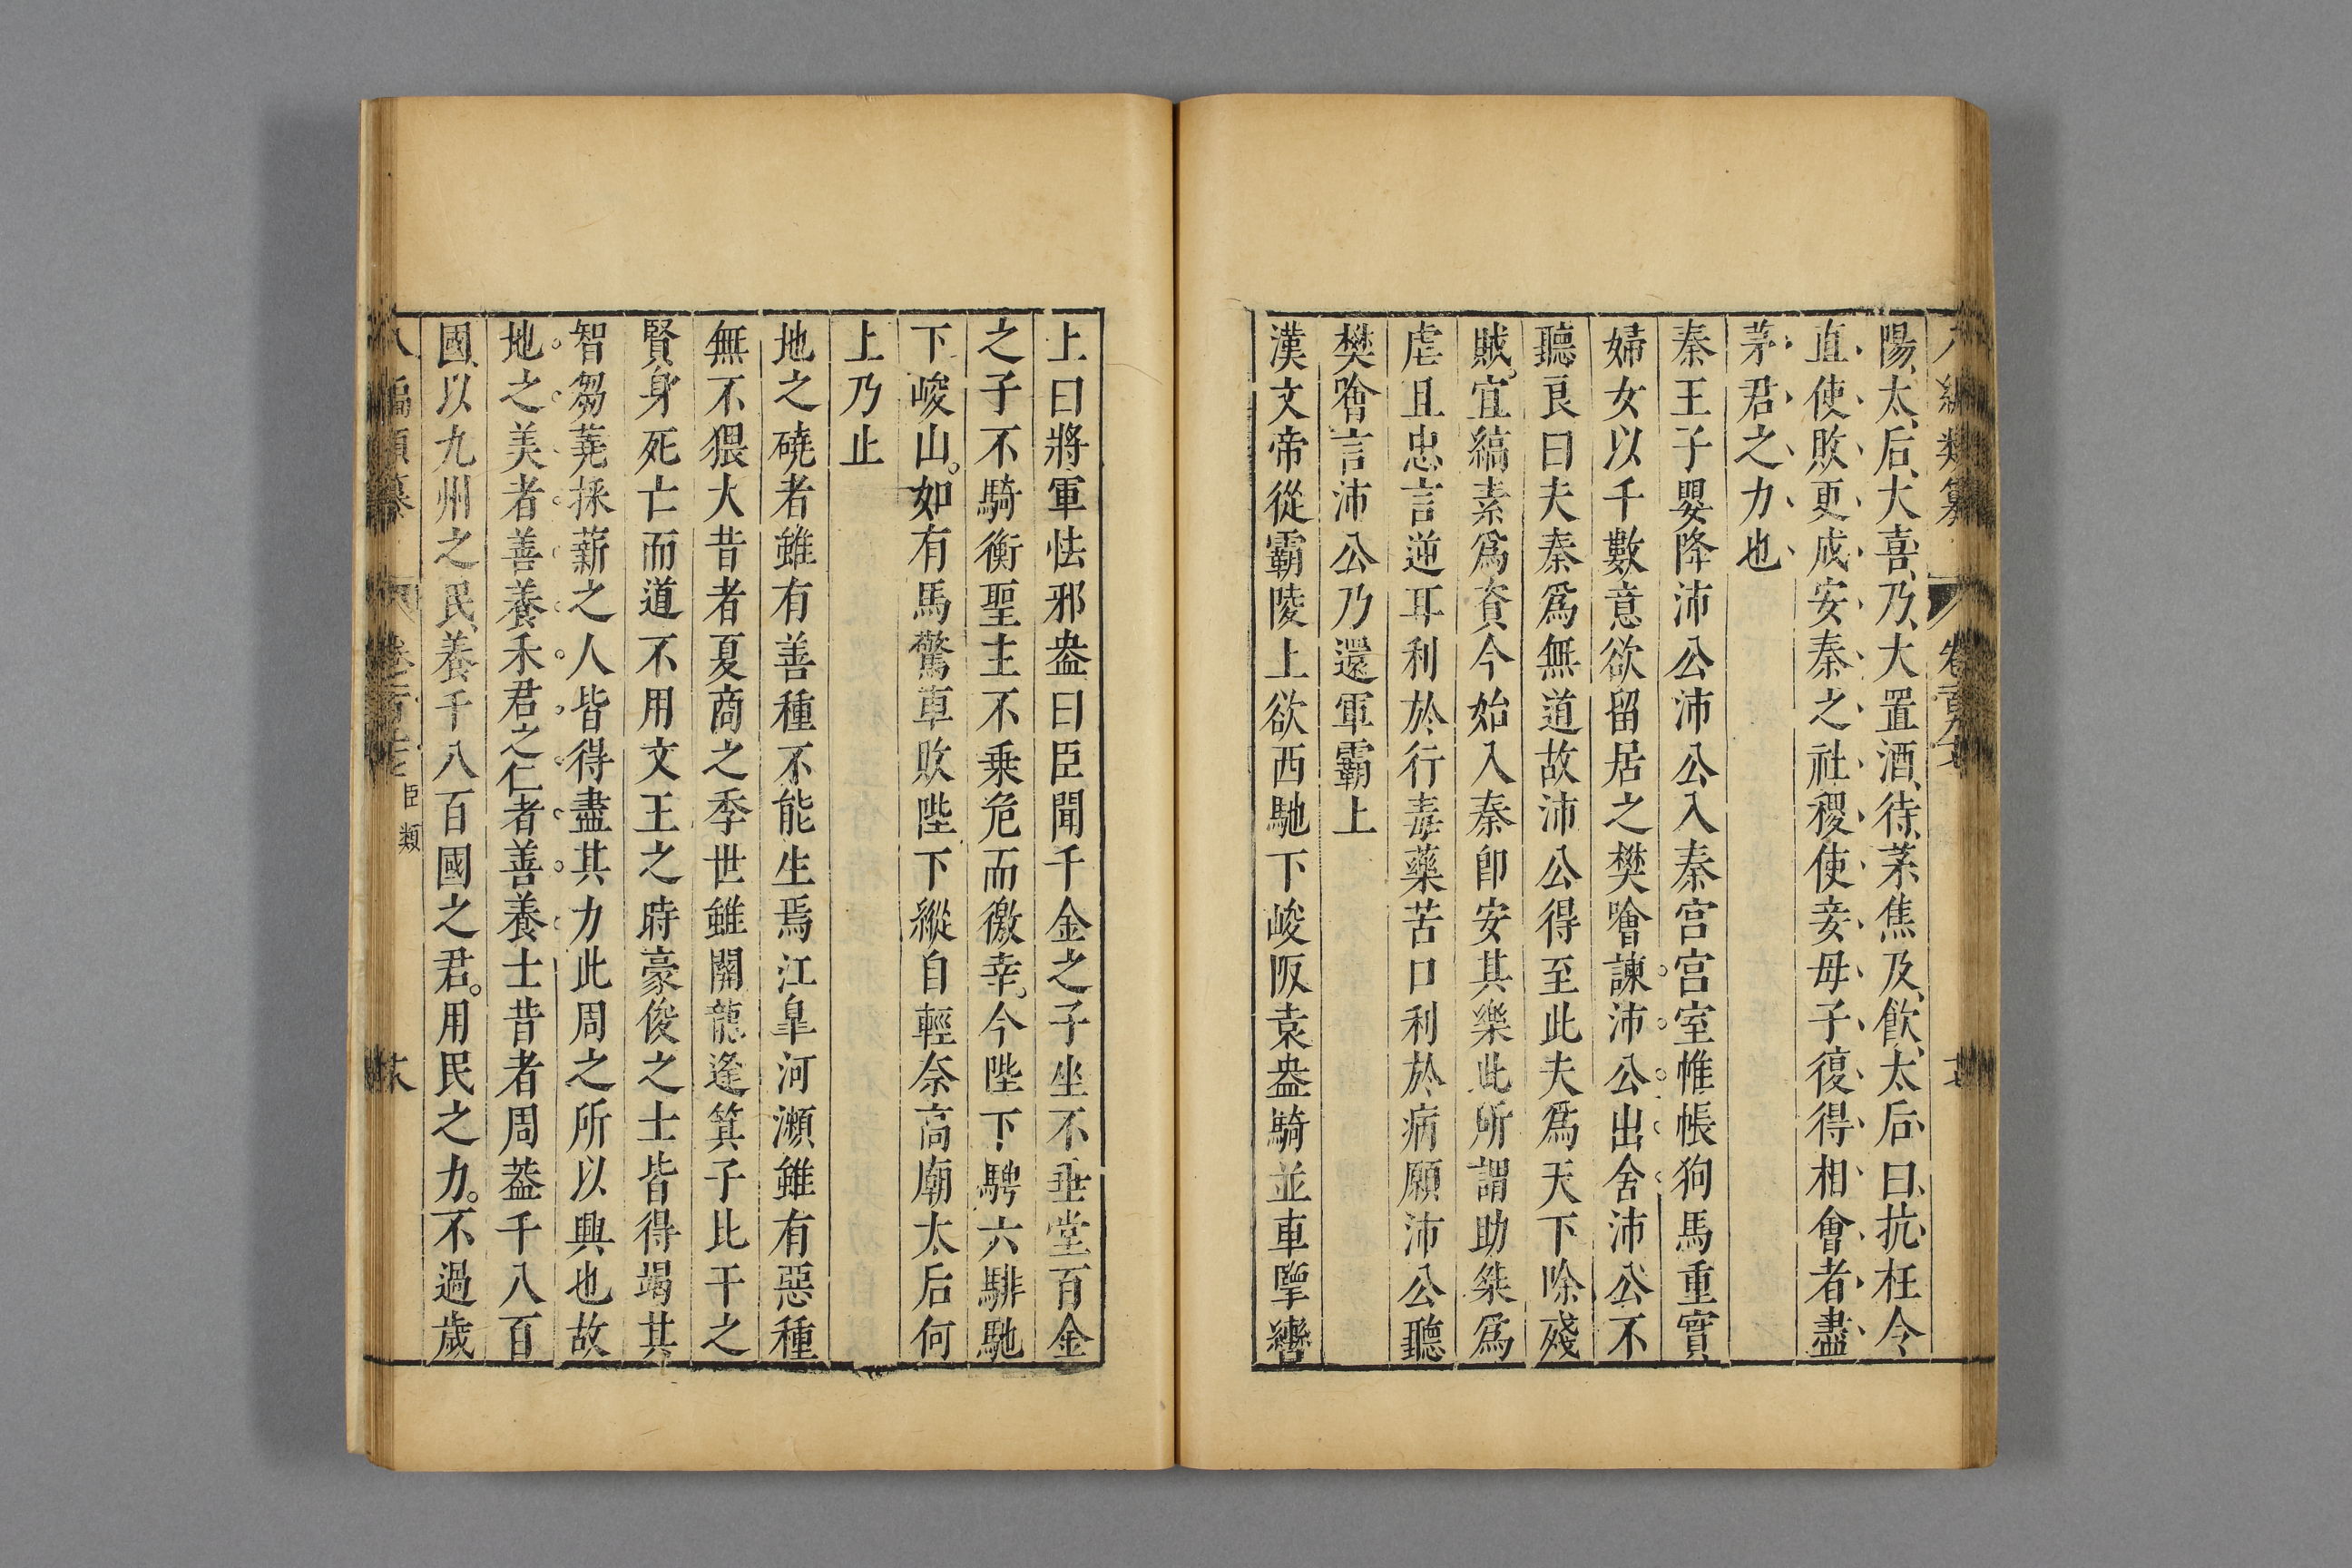 陽太后大喜乃大置酒待茅焦及飲太后曰抗枉令
直使敗更成安秦之社稷使妾母子復得相會者盡
茅君之力也
秦王子嬰降沛公沛公入秦宮宮室帷帳狗馬重寶
婦女以千數意欲留居之樊噲諫沛公出舍沛公不
聽良曰夫秦爲無道故沛公得至此夫爲天下除殘
賊宜縞素爲資今始入秦卽安其樂此所謂助桀爲
虐且忠言逆耳利於行毒藥苦口利於病願沛公聽
樊噲言沛公乃還軍霸上
漢文帝從霸陵上欲西馳下峻阪袁盎騎並車擥轡
上曰將軍怯邪盎曰臣聞千金之子坐不垂堂百金
之子不騎衡聖主不乘危而徼幸。今陛下騁六騑馳
下峻山。如有馬驚車敗陛下縱自輕奈高廟太后何
上乃止
地之磽者雖有善種不能生焉江皐河瀕雖有惡種
無不猥大昔者夏商之季世雖關龍逢箕子比干之
賢身死亡而道不用文王之時豪俊之士皆得竭其
智芻蕘採薪之人皆得盡其力此周之所以興也故
地之美者善養禾君之仁者善養士昔者周葢千八百
國以九州之民養千八百國之君。用民之力。不過歲
臣類